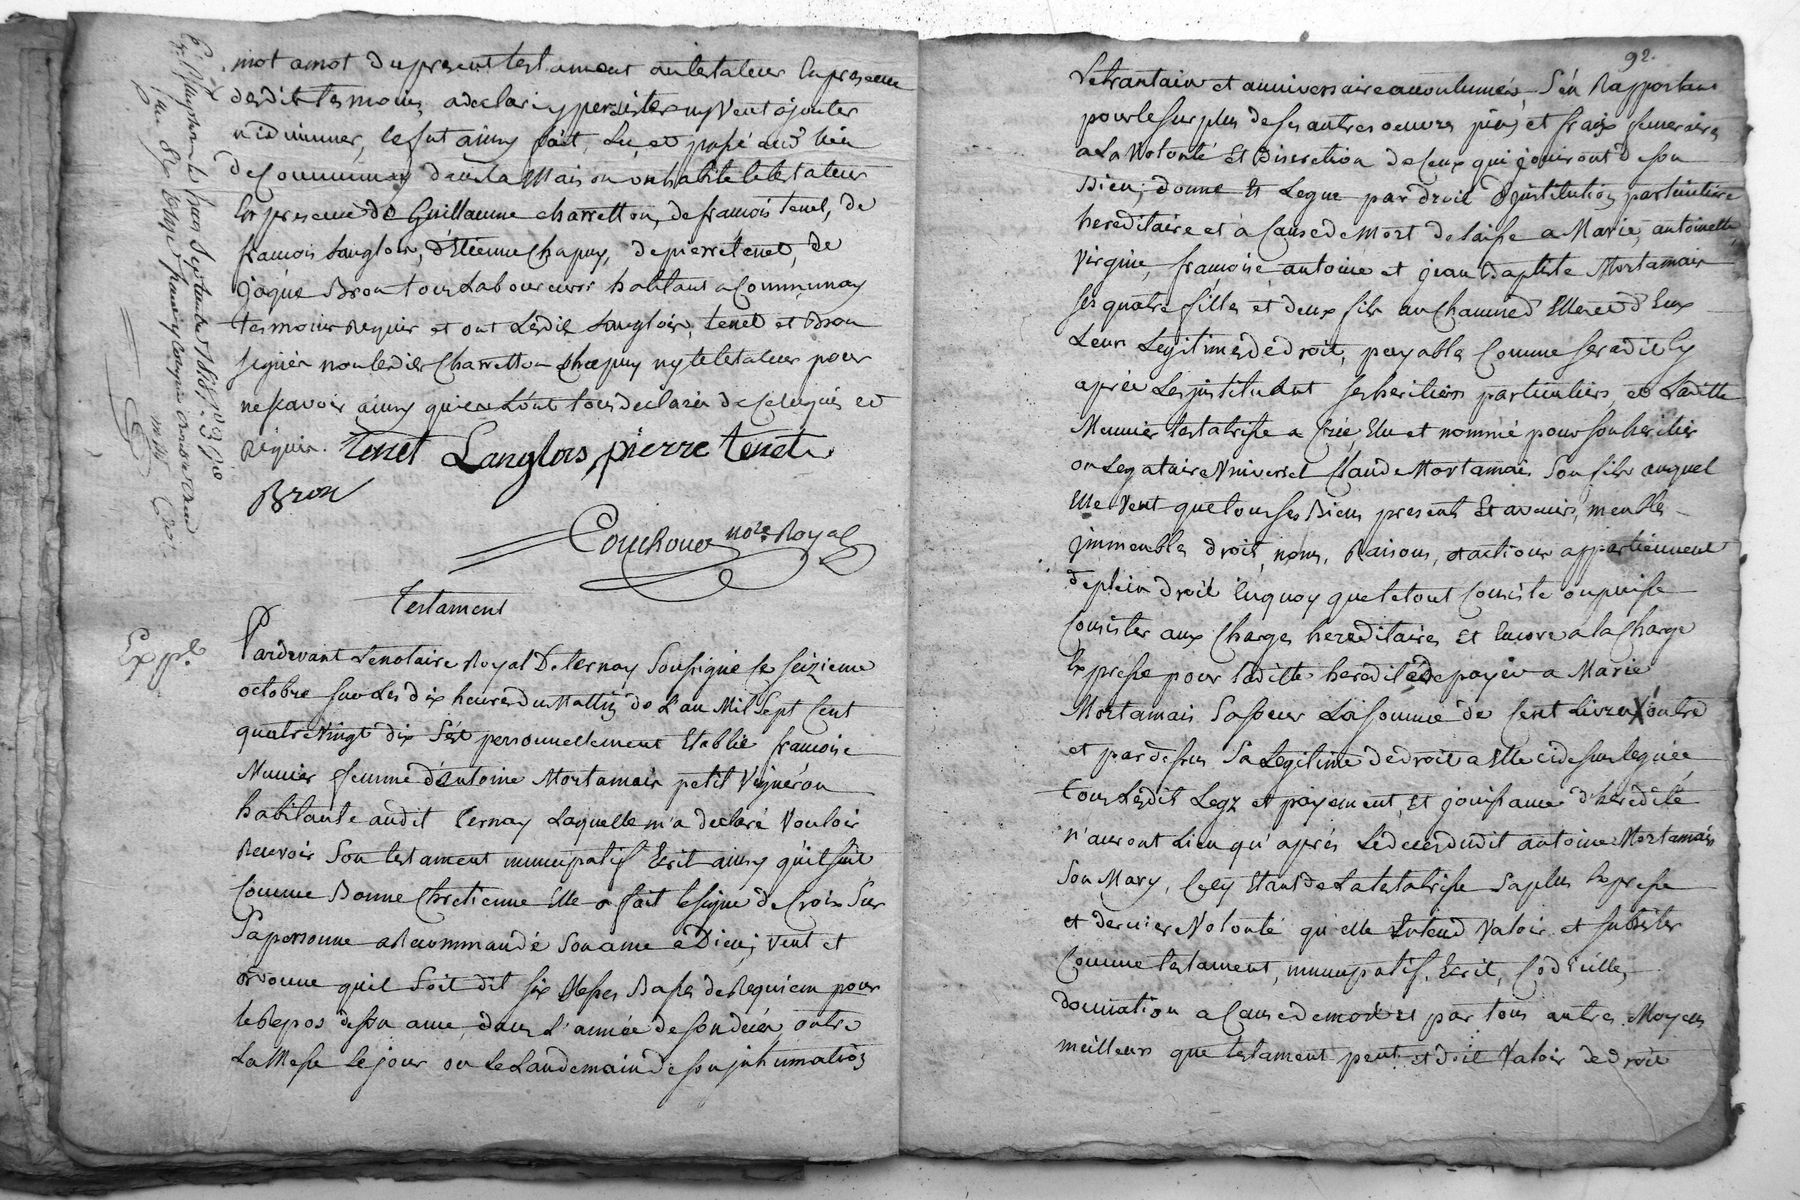 mot amot dupresent testament au testateur en presence
desdits tesmoins, a declaré y persister ny veut ajouter
ni diminuer, ce fut ainsy fait, Lu, et passé aud lieu
de Communay dans la Maison ou habite le testateur
En presence de Guillaume charretton, de françois tenet, de
françois Langlois, d'Etienne Chapuy, de pierre tenet, de
jâque Bron tous Laboureurs habitans a Communay
tesmoins Requis et ont Lesdits Langlois, tenet et Bron
signés non lesdits Charretton Chapuy ny le testateur pour
ne scavoir ainsy qu'ils L'ont tous declaré de ce enquis et
Requis. tenet Langlois pierre tenet
Bron
Couchoud nore Royal
testament
Expé.
Pardevant Le notaire Royal De ternay Soussigné le seizieme
octobre sur Les dix heures du Mattin de L'an Mil Sept Cent
quatre Vingt dix S'est personnellement Etablie françoise
Munier femme d'antoine Mortamais petit Vigneron
habitante audit Ternay Laquelle m'a declaré Vouloir
Recevoir Son testament nuncupatif Ecrit ainsy qu'il suit
Comme Bonne Chretienne Elle a fait le signe de Croix Sur
Sa personne a Recommandé Son ame a Dieu, veut et
ordonne quil Soit dit six Messes Basses de Requiem pour
le Repos de son ame, dans L'année de son décés outre
La Messe Le jour ou Le Landemain de son inhumation
92.
Le trantain et anniversaire accoutumés, S'en Rapportant
pour le surplus de ses autres oeuvres pies et fraix funeraires
a La Volonté Et Discretion de Ceux qui jouiront de son
Bien; donne Et Legue par droit d'institution particuliere
hereditaire et à Cause de Mort delaisse a Marie, antoinette,
Virginie, françoise, antoine et jean Baptiste Mortamais
ses quatre filles et deux fils au Chacune d'Elles et d'Eux
Leurs Legitimes de droit, payables Comme sera dit Cy
aprés Les instituant ses heritiers particuliers, et Laditte
Munier testatrisse a Créé, Elu et nommé pour son heritier
ou Legataire Universel Claude Mortamais Son fils auquel
Elle Veut que tous ses Biens presents Et avenirs, meubles
immeubles droits, noms, Raisons, et actions appartiennent
de plein droit En quoy que le tout Consiste ou puisse
Consister aux Charges hereditaires Et Encore a la Charge
Expresse pour Laditte heredité de payer a Marie
Mortamais Sa soeur La somme de Cent Livres outre
et par dessus Sa Legitime de droit a Elle cidessus leguée
tous Lesdits Legs et payement, Et jouissance d'heredité
n'auront Lieu qu'aprés Le decés dudit antoine Mortamais
Son Mary, Cecy Etant de La testatrisse Sa plus Expresse
et derniere Volonté qu'elle Entend Valoir et subsister
Comme testament, nuncupatif, Ecrit, Codicille,
donnation a Cause de mort Et par tous autres Moyens
meilleurs que testament peut et doit Valoir de droit